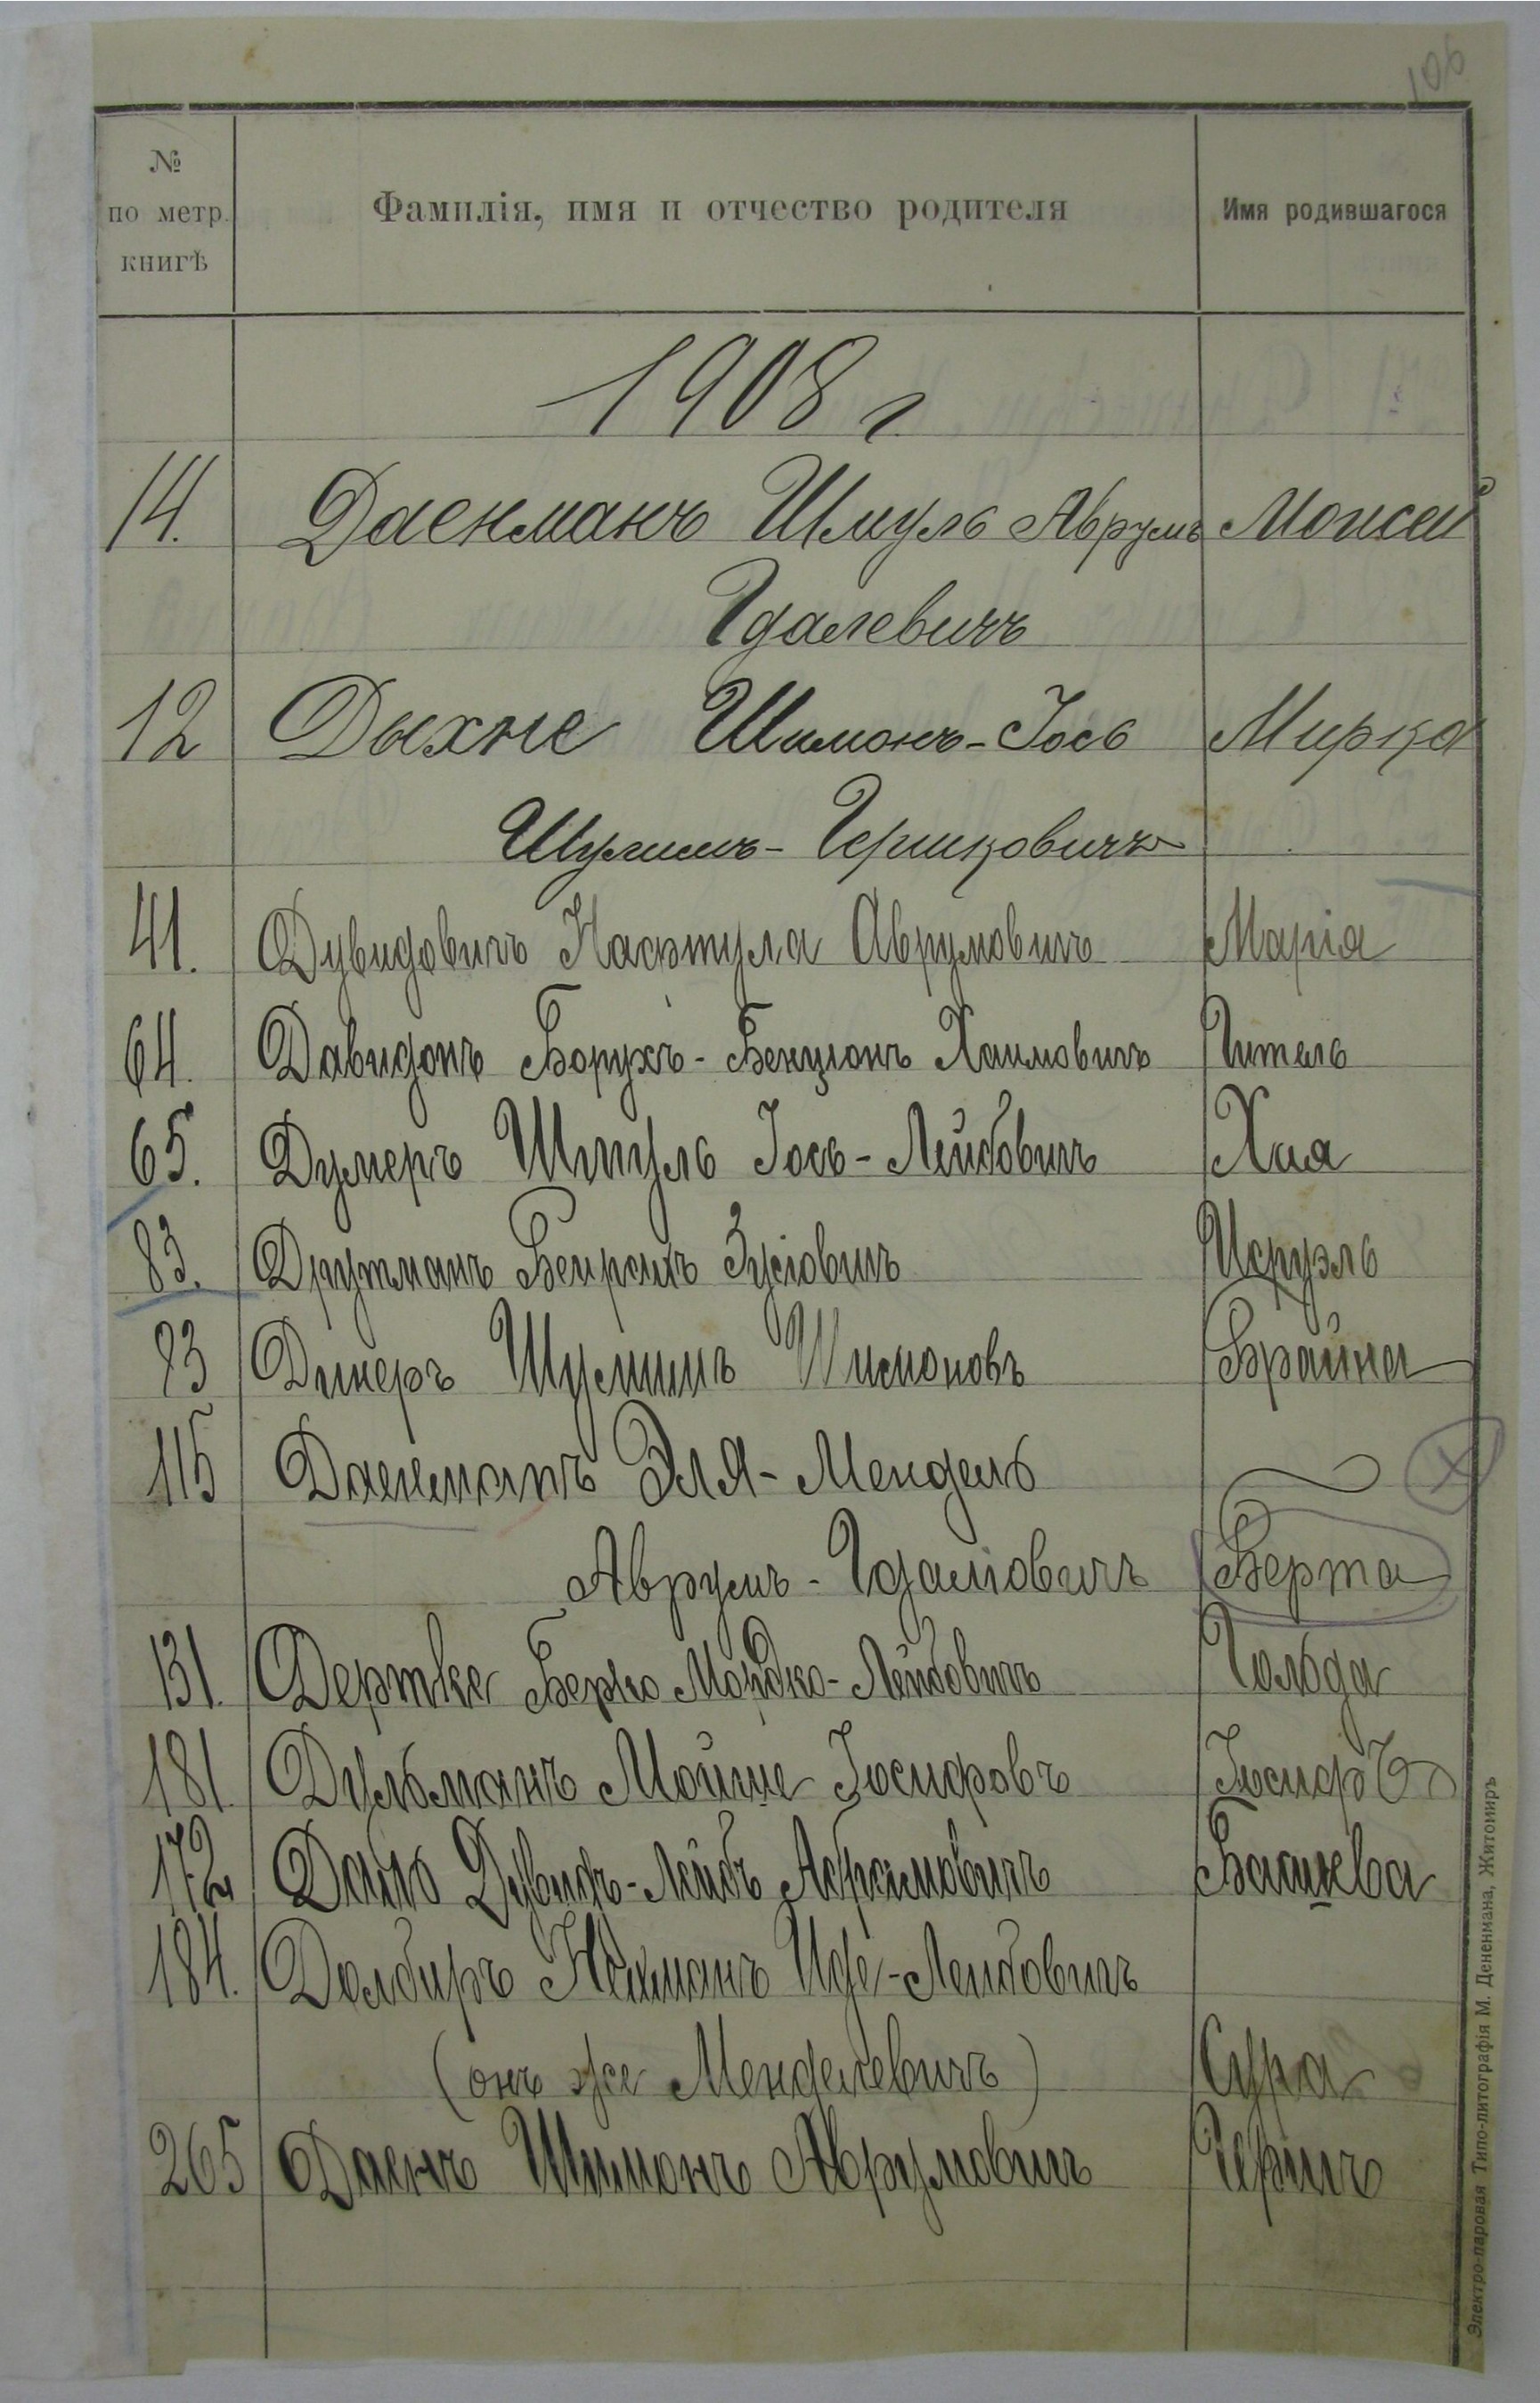 106
№ по метр. книгѣ Фамилія, имя и отчество родителя Имя родившагося
1908 г
14. Даенманъ Шмуль Аврумъ Моисей
Гдалевичъ
12 Дыхне Шимонъ-Іось Мирка
Шулимъ-Гершковичъ
41. Дувидовичъ Насртула Аврумовичъ Марія
64. Давидонъ Борухъ-Бенціонъ Хаимовичъ Гитель
65. Думеръ Шмуль Іось-Лейбовичъ Хая
83. Друтманъ Бейришъ Зусіовичъ Исруэль
93 Динеръ Шулимъ Шимоновъ Брайна
115 Даенманъ Эля-Мендель
Аврумъ-Гдаліовичъ Берта
131. Дертке Берко Мордко-Лейбовичъ Гольда
181. Дульманъ Мойше Іосифовъ Іосифъ
172 Дайло Дувидъ-Лейбъ Абрамовичъ Башева
184. Долбиръ Нахманъ Иде-Лейбовичъ
(онъ же Менделевичъ) Сура
265 Даенъ Шимонъ Аврумовичъ Гершъ
Электро-паровая Типо-литографія М. Дененмана, Житомиръ